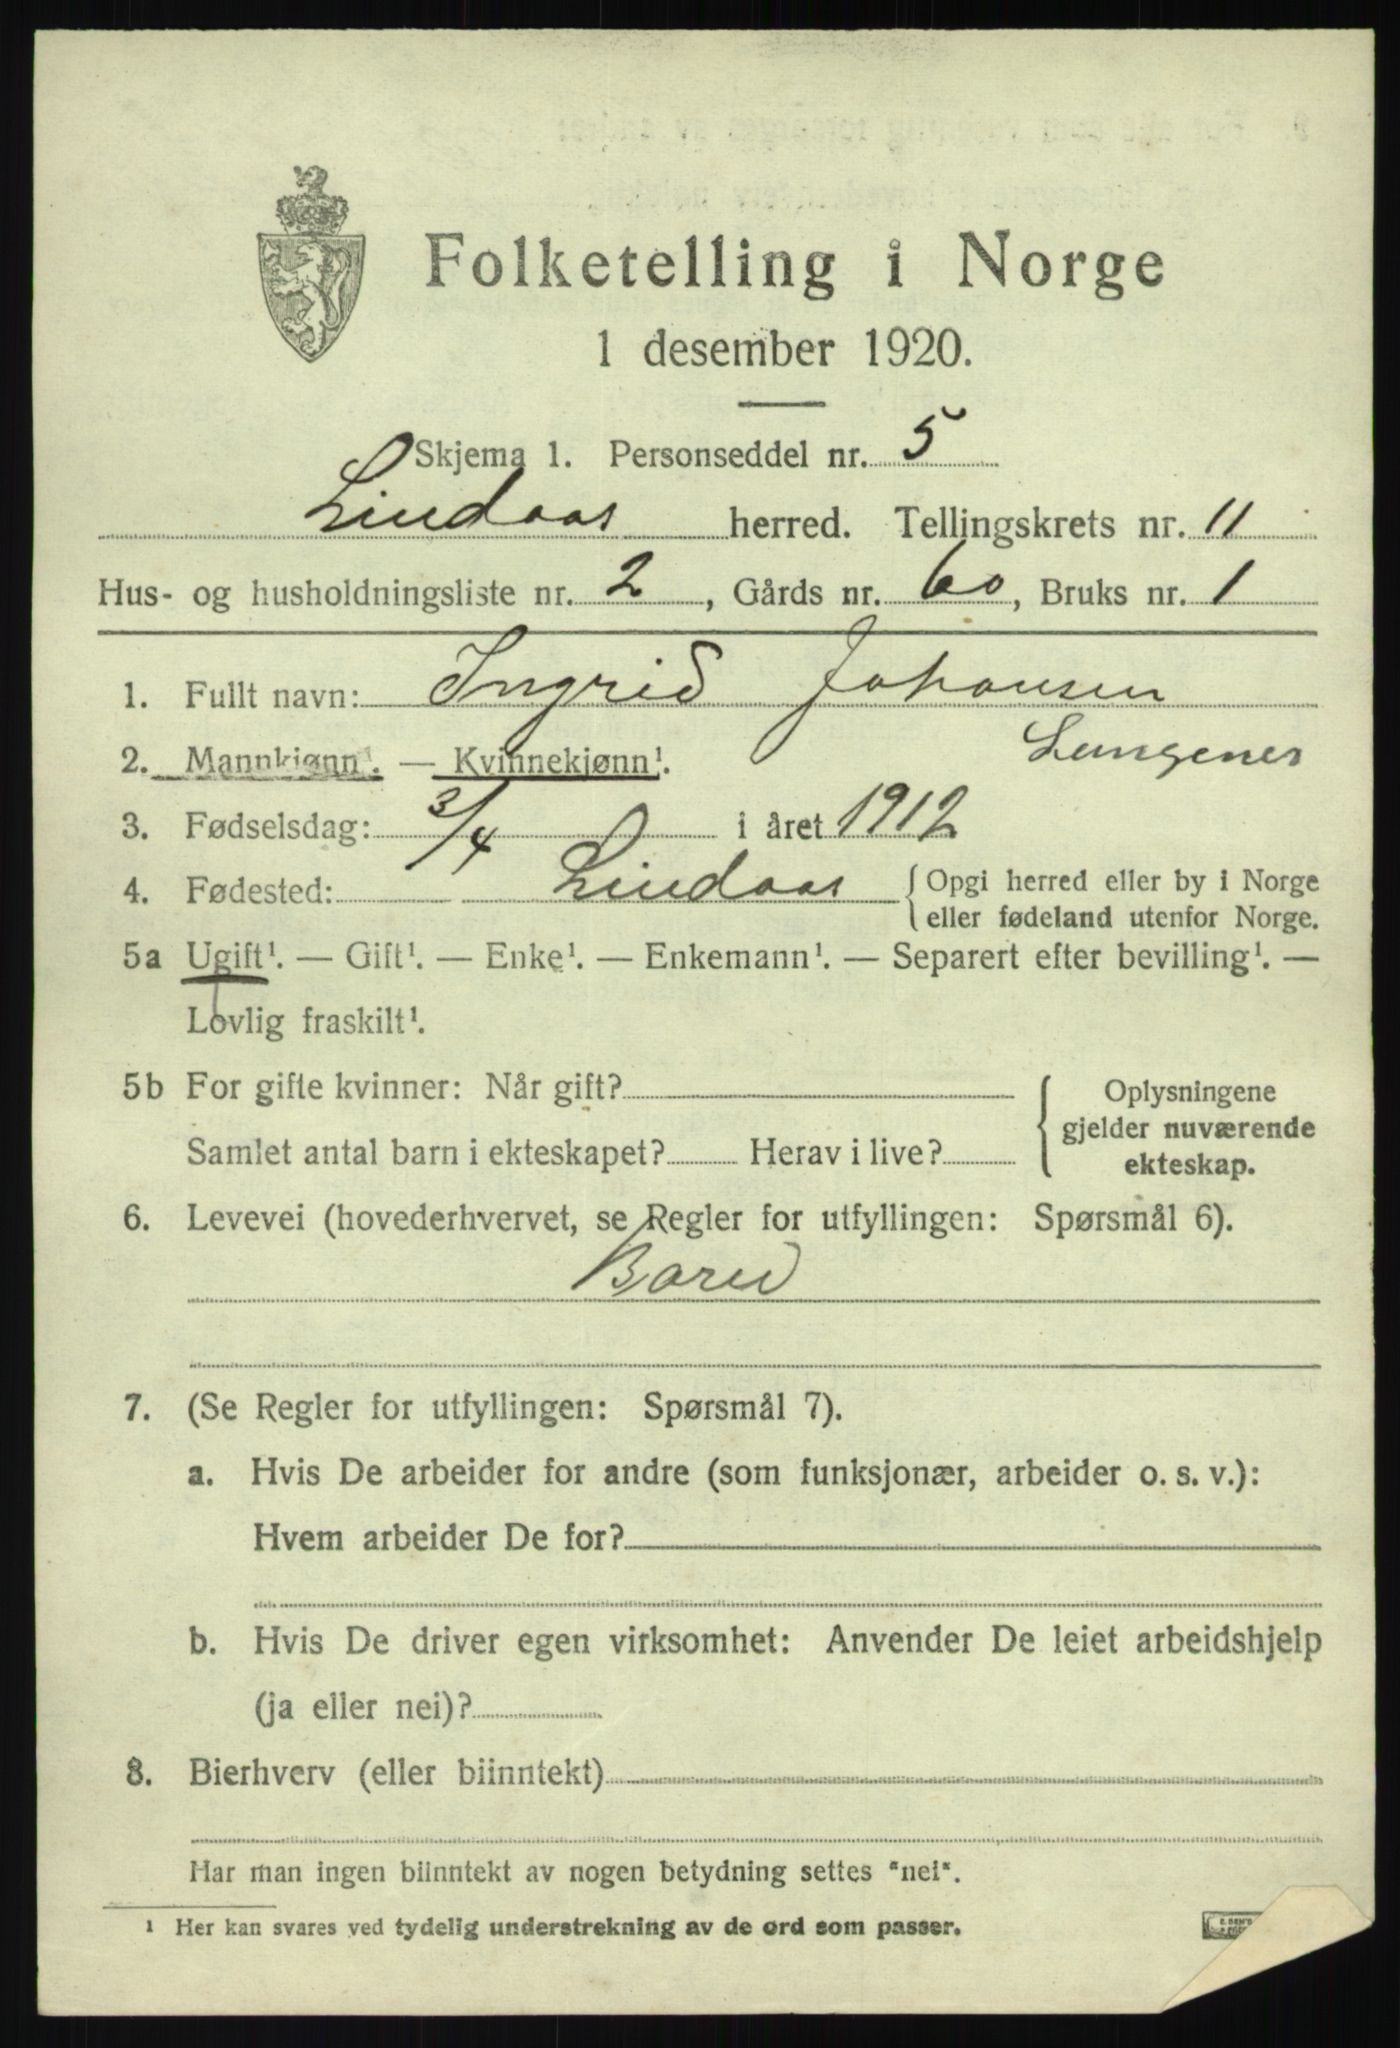 Folketelling i Norge
1 desember 1920.
Skjema 1. Personseddel nr. 5
Lindaas herred. Tellingskrets nr. 11
Hus- og husholdningsliste nr. 2, Gårds nr. 60, Bruks nr. 1
1. Fullt navn: Ingrid Johansen
2. Mannkjønn¹. — Kvinnekjønn¹.
3. Fødselsdag: 3/4 i året 1912
4. Fødested: Lindaas { Opgi herred eller by i Norge
eller fødeland utenfor Norge.
5a Ugift¹. — Gift¹. — Enke¹. — Enkemann¹. — Separert efter bevilling¹. —
Lovlig fraskilt¹.
5b For gifte kvinner: Når gift?
Samlet antal barn i ekteskapet? Herav i live?
{ Oplysningene
gjelder nuværende
ekteskap.
6. Levevei (hovederhvervet, se Regler for utfyllingen: Spørsmål 6).
Barn
7. (Se Regler for utfyllingen: Spørsmål 7).
a. Hvis De arbeider for andre (som funksjonær, arbeider o. s. v.):
Hvem arbeider De for?
b. Hvis De driver egen virksomhet: Anvender De leiet arbeidshjelp
(ja eller nei)?
8. Bierhverv (eller biinntekt)
Har man ingen biinntekt av nogen betydning settes "nei".
¹ Her kan svares ved tydelig understrekning av de ord som passer.